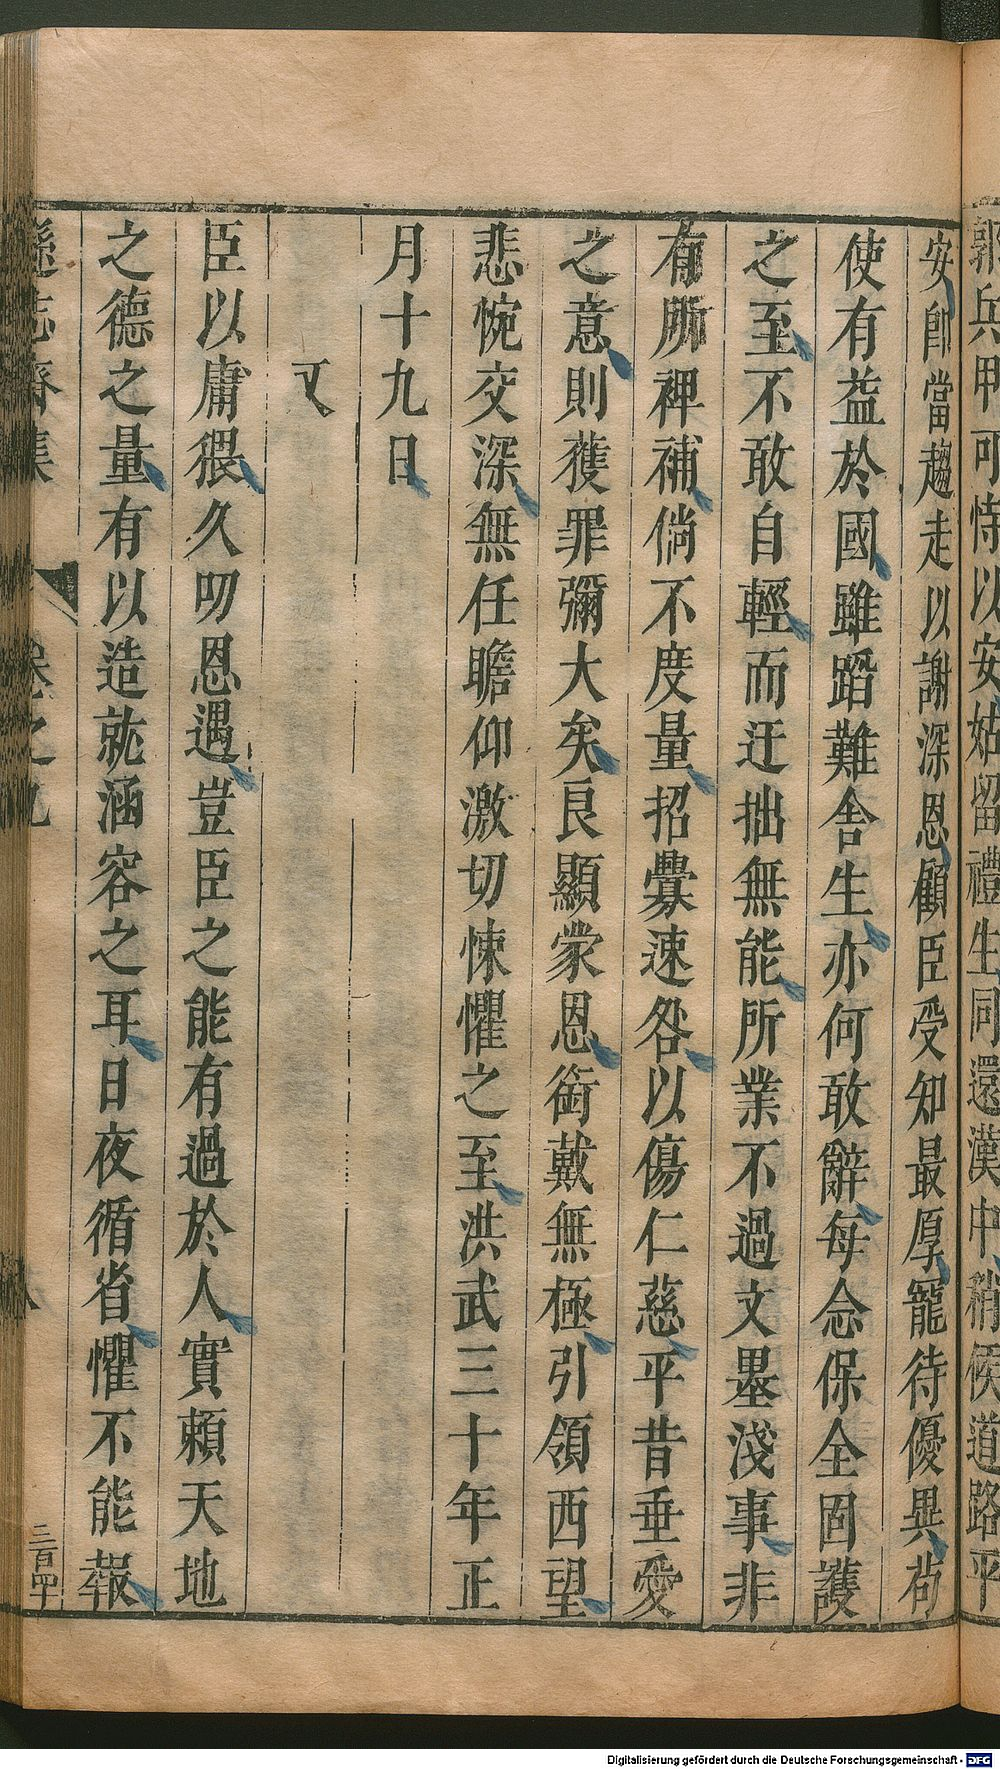 郭兵甲可恃以安姑留禮生同還漢中稍候道路平
安卽當趨走以謝深恩顧臣受知最厚寵待優異茍
使有益於國雖蹈難舍生亦何敢辭每念保全固護
之至不敢自輕而迂拙無能所業不過文墨淺事非
有所裨補倘不度量招釁速咎以傷仁慈平昔垂愛
之意則獲罪彌大矣良顯蒙恩銜戴無極引領西望
悲惋交深無任瞻仰激切悚懼之至洪武三十年正
月十九日
又
臣以庸猥久叨恩遇豈臣之能有過於人實賴天地
之德之量有以造就涵容之耳日夜循省懼不能報
遜志齋集 卷之九 八 三百四十
Digitalisierung gefördert durch die Deutsche Forschungsgemeinschaft - DFG